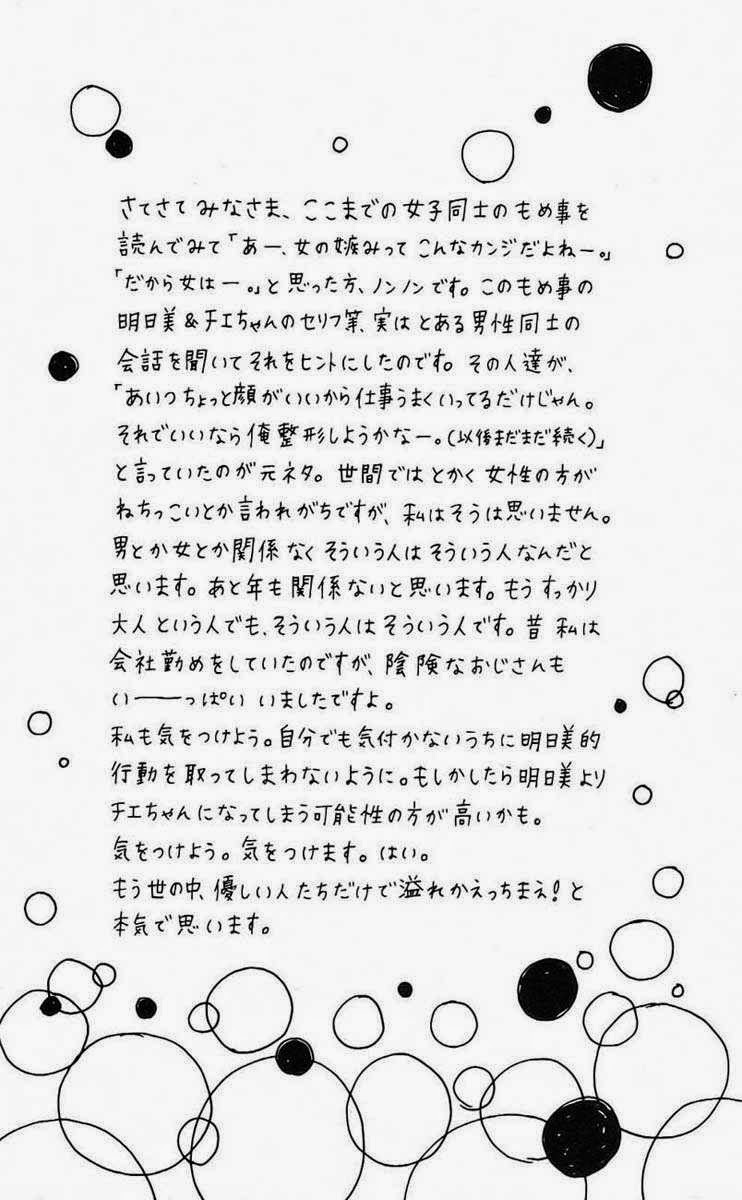 さてさて みなさま、ここまでの女子同士のもめ事を
読んでみて「あー、女の嫉みって こんなカンジだよねー。」
「だから女はー。」と思った方、ノンノンです。このもめ事の
明日美&チエちゃんのセリフ等、実は とある男性同士の
会話を聞いてそれをヒントにしたのです。その人達が、
「あいつちょっと顔がいいから仕事うまくいってるだけじゃん。
それでいいなら俺整形しようかなー。(以後まだまだ続く)」
と言っていたのが元ネタ。世間ではとかく女性の方が
ねちっこいとか言われがちですが、私はそうは思いません。
男とか女とか関係なくそういう人はそういう人なんだと
思います。あと年も関係ないと思います。もうすっかり
大人という人でも、そういう人はそういう人です。昔 私は
会社勤めをしていたのですが、陰険なおじさんも
い――っぱい いましたですよ。
私も気をつけよう。自分でも気付かないうちに明日美的
行動を取ってしまわないように。もしかしたら明日美より
チエちゃんになってしまう可能性の方が高いかも。
気をつけよう。気をつけます。はい。
もう世の中、優しい人たちだけで溢れかえっちまえ!と
本気で思います。